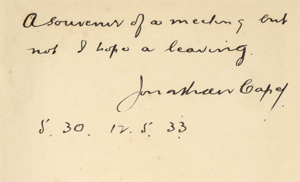 A souvenir of a meeting but
not I hope a leaving.
Jonathan Cape
5.30. 12.5.33